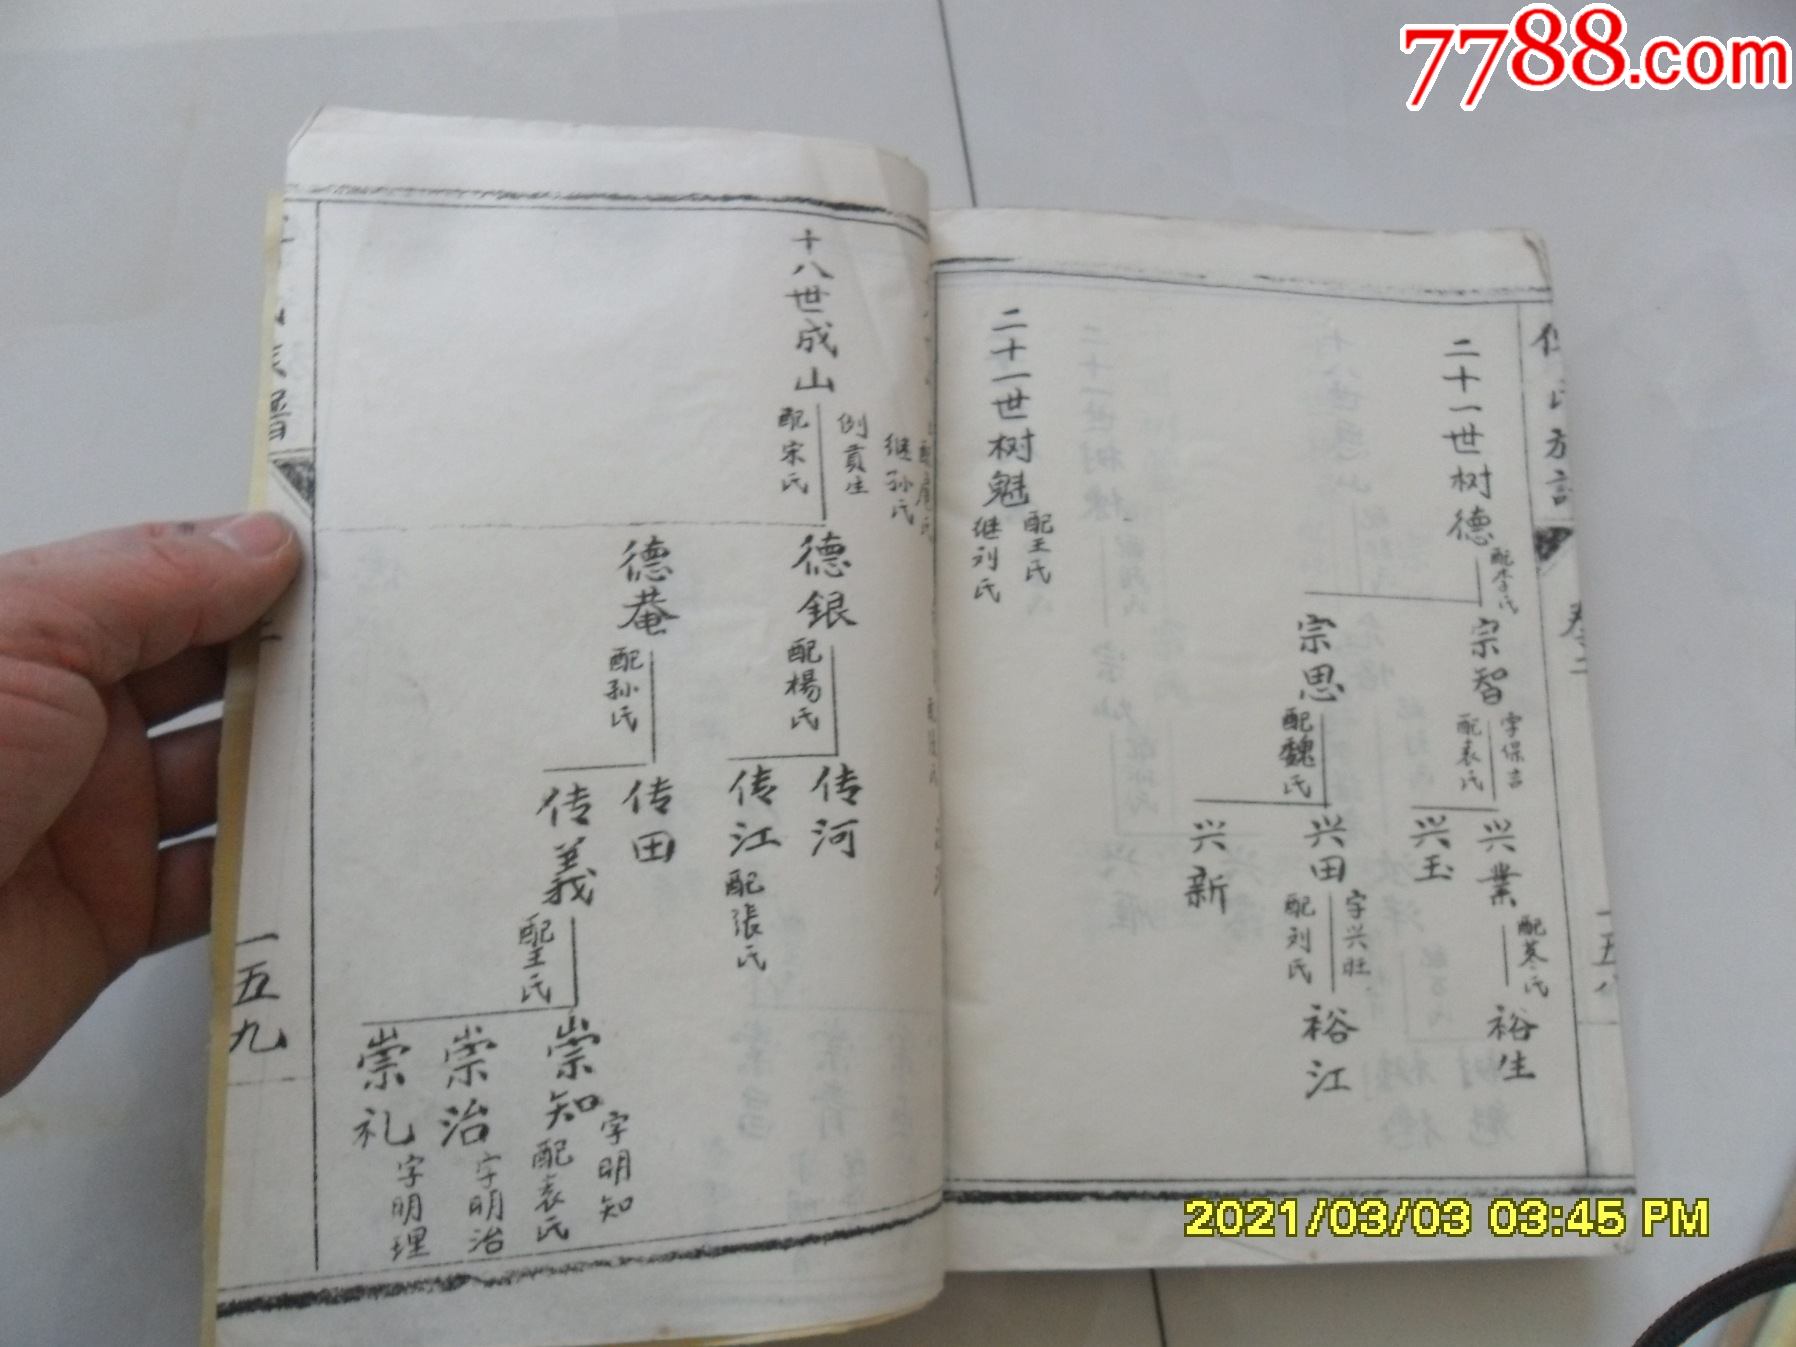 7788.com
二十一世树德
配李氏
宗智
字保吉
配袁氏
兴業
裕生
兴玉
宗思
配魏氏
兴田
字兴旺
配刘氏
裕江
兴新
二十一世树魁
配王氏
继刘氏
继孙氏
十八世成山
例貢生
配宋氏
德銀
配楊氏
传河
传江
配張氏
德菴
配孙氏
传田
传義
配王氏
崇知
字明知
配袁氏
崇治
字明治
崇礼
字明理
一五九
2021/03/03 03:45 PM